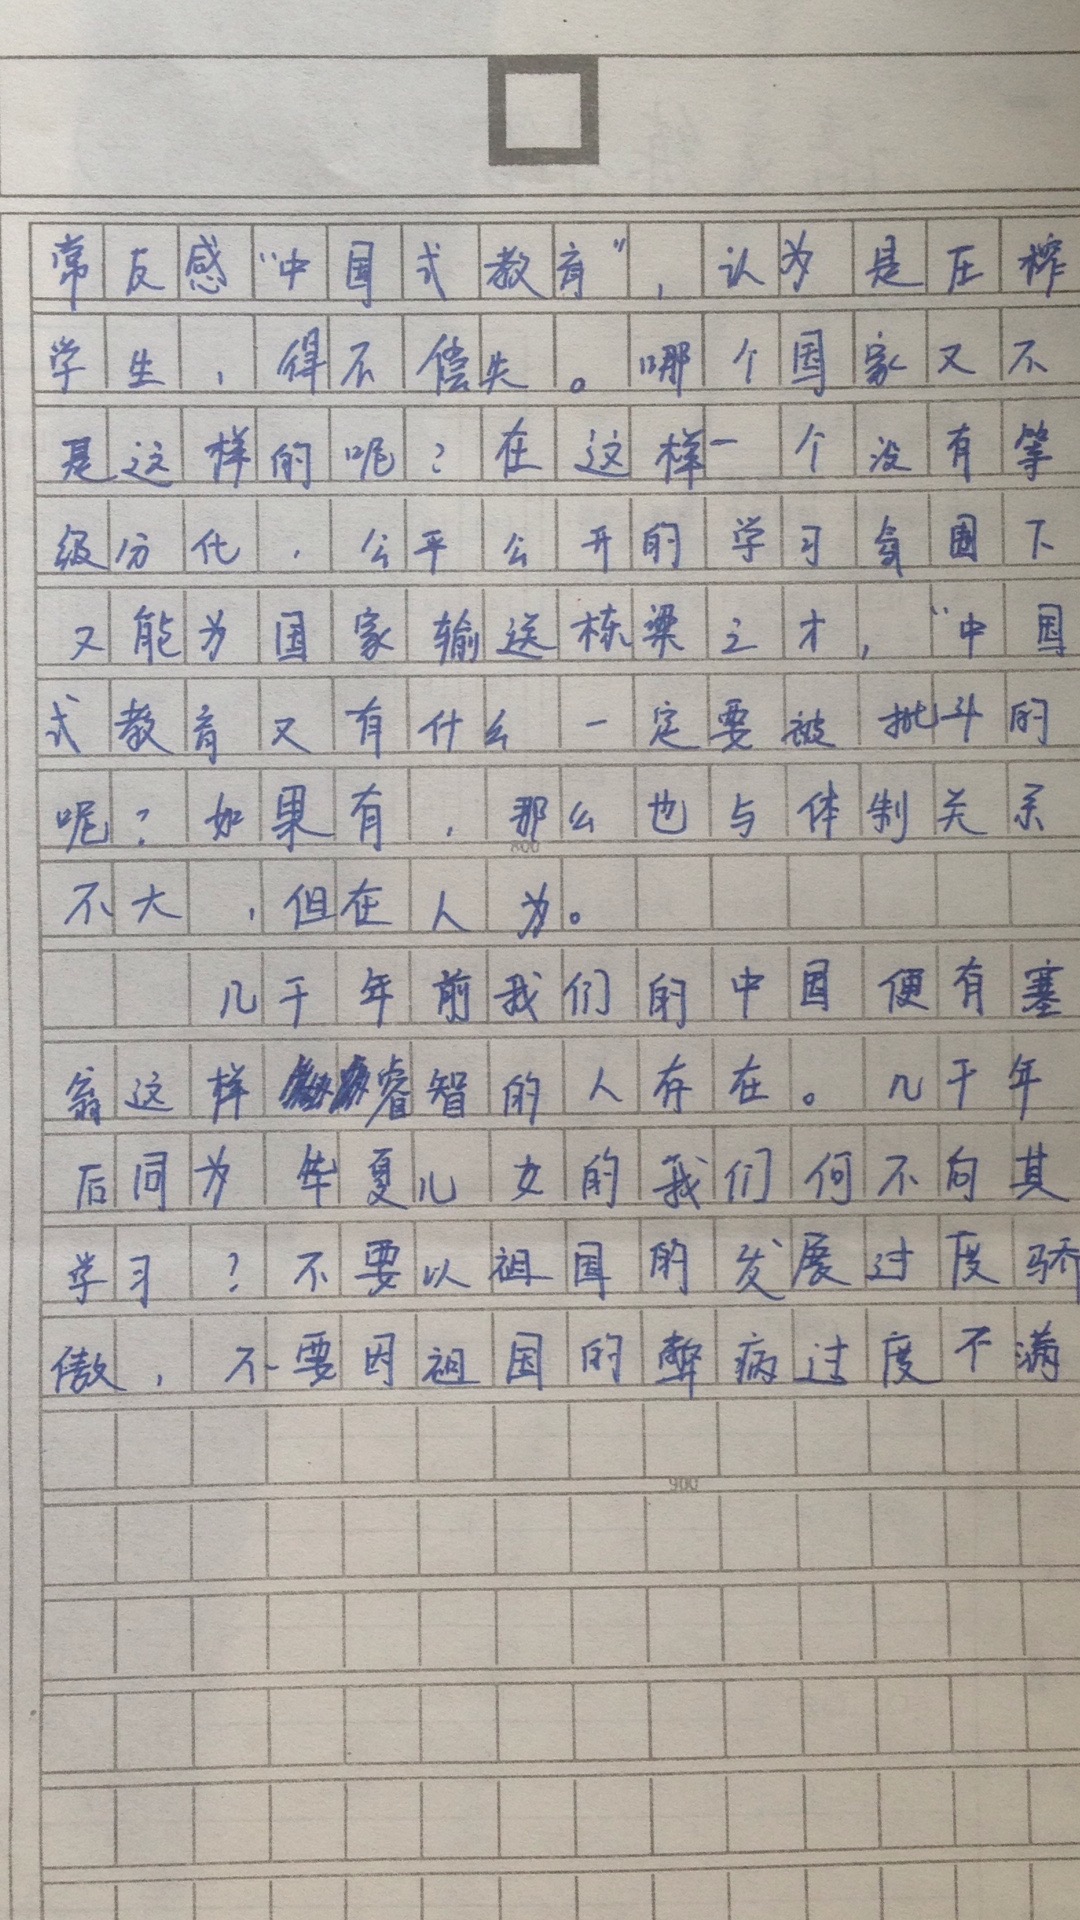 常反感“中国式教育”，认为是压榨
学生，得不偿失。哪个国家又不
是这样的呢？在这样一个没有等
级分化，公平公开的学习氛围下
又能为国家输送栋梁之才，“中国
式教育又有什么一定要被批斗的
呢？如果有，那么也与体制关系
800
不大，但在人为。
几千年前我们的中国便有塞
翁这样睿智的人存在。几千年
后同为华夏儿女的我们何不向其
学习？不要以祖国的发展过度骄
傲，不要因祖国的弊病过度不满
900